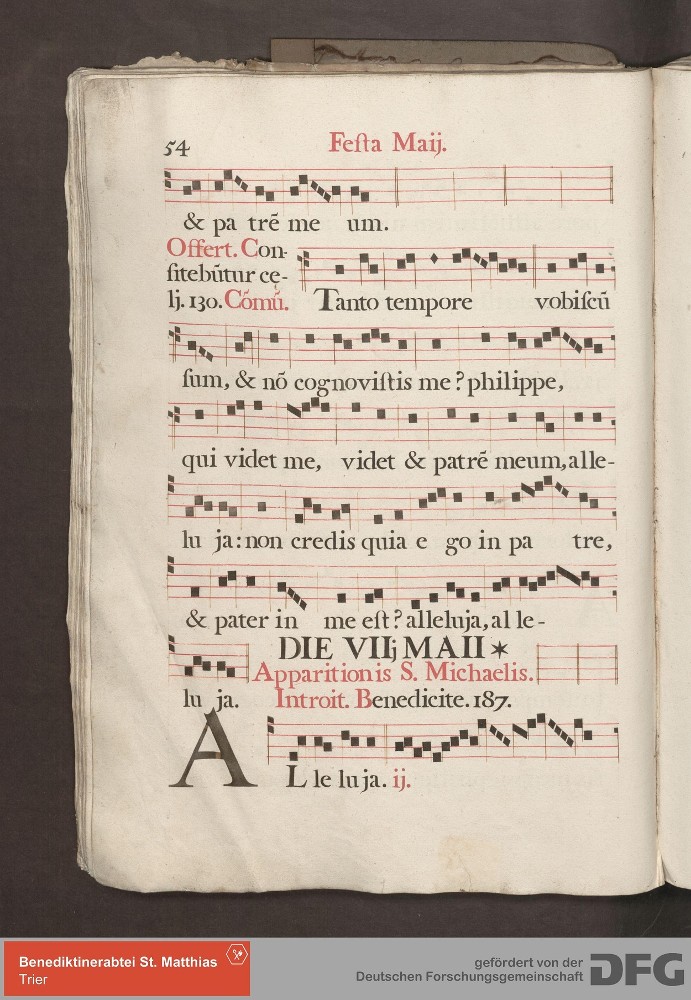 54
Festa Maij.
& pa trē me um.
Offert. Con-
fitebūtur cę-
lj. 130. Cōmū. Tanto tempore vobiscū
sum, & nō cognovistis me? philippe,
qui videt me, videt & patrē meum, alle-
lu ja: non credis quia e go in pa tre,
& pater in me est? alleluja, al le-
DIE VIIj MAII *
Apparitionis S. Michaelis.
lu ja. Introit. Benedicite. 187.
AL le lu ja. ij.
Benediktinerabtei St. Matthias
Trier
gefördert von der
Deutschen Forschungsgemeinschaft DFG